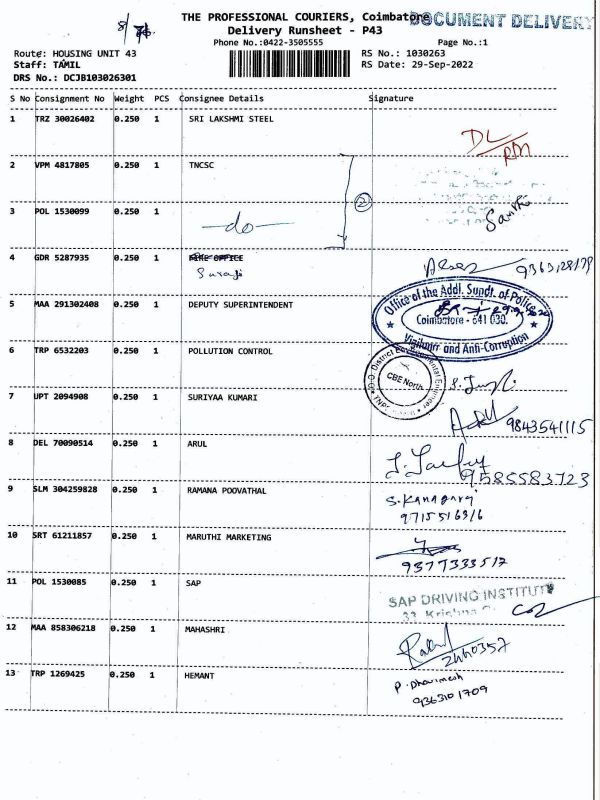 THE PROFESSIONAL COURIERS, Coimbatore
DOCUMENT DELIVERY
Delivery Runsheet - P43
Phone No.:0422-3505555
Page No.:1
Route: HOUSING UNIT 43
RS No.: 1030263
Staff: TAMIL
RS Date: 29-Sep-2022
DRS No.: DCJB103026301
S No Consignment No Weight PCS Consignee Details Signature
1 TRZ 30026402 0.250 1 SRI LAKSHMI STEEL
DL/RM
2 VPM 4817805 0.250 1 TNCSC
2
3 POL 1530099 0.250 1
-do-
4 GDR 5287935 0.250 1 FIRE OFFICE
Suraji
5 MAA 291302408 0.250 1 DEPUTY SUPERINTENDENT
Office of the Addl. Supdt. of Police
Coimbatore - 641 030.
Vigilance and Anti-Corruption
6 TRP 6532203 0.250 1 POLLUTION CONTROL
District Environmental Engineer
CBE North
7 UPT 2094908 0.250 1 SURIYAA KUMARI
9843541115
8 DEL 70090514 0.250 1 ARUL
9585583723
9 SLM 304259828 0.250 1 RAMANA POOVATHAL
S. Kanagaraj
10 SRT 61211857 0.250 1 MARUTHI MARKETING
9377333517
11 POL 1530085 0.250 1 SAP
SAP DRIVING INSTITUTE
12 MAA 858306218 0.250 1 MAHASHRI
2440357
13 TRP 1269425 0.250 1 HEMANT
9363101709